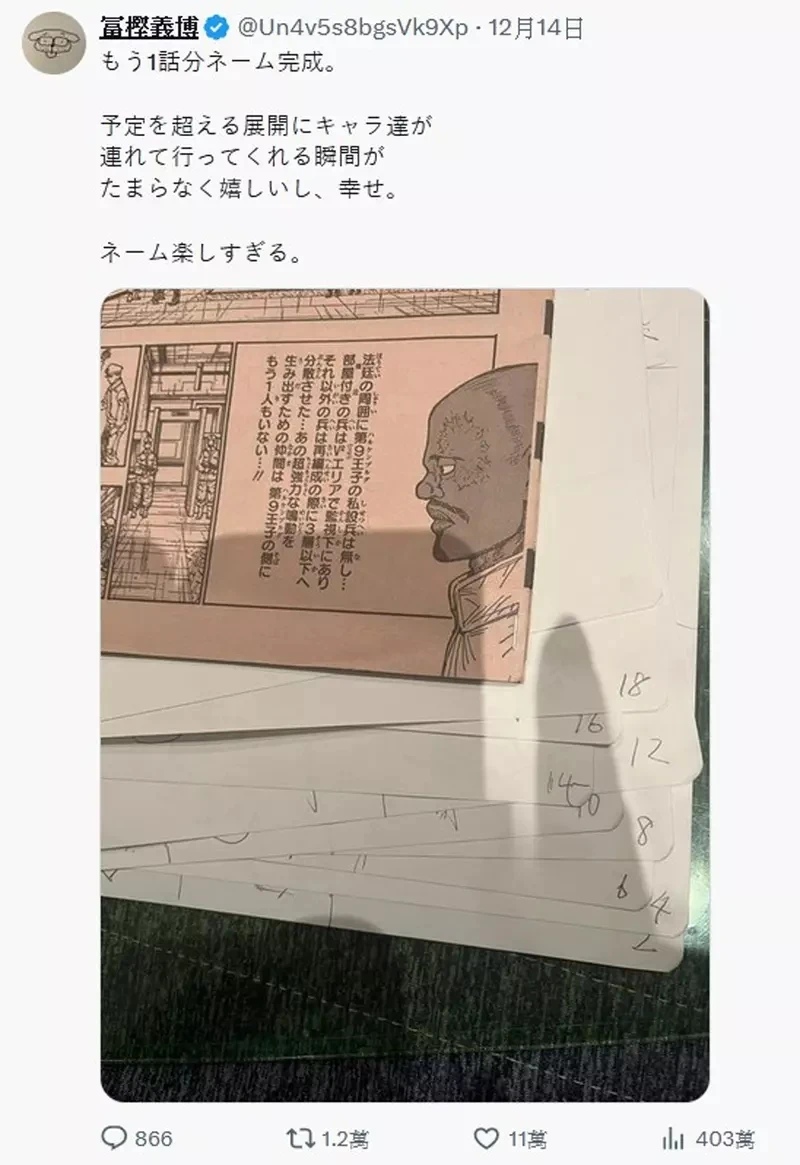 冨樫義博 @Un4v5s8bgsVk9Xp · 12月14日
もう1話分ネーム完成。
予定を超える展開にキャラ達が
連れて行ってくれる瞬間が
たまらなく嬉しいし、幸せ。
ネーム楽しすぎる。
法廷の周囲に第9王子の私設兵は無し…
部屋付きの兵はVIPエリアで監視下にあり
それ以外の兵は再編成の際に3層以下へ
分散させた…あの超強力な鳴動を
生み出すための仲間は第9王子の側に
もう1人もいない…!!
18
16
12
14
10
8
6
4
2
866
1.2萬
11萬
403萬